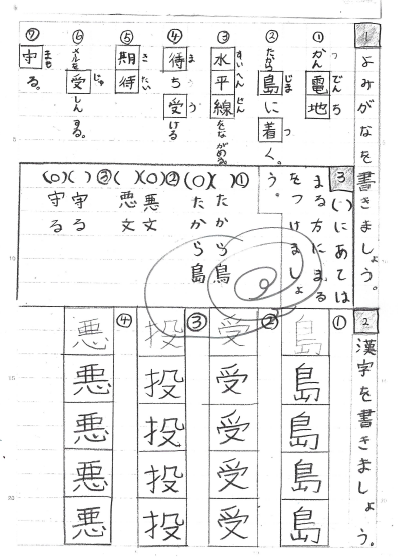 1 よみがなを書きましょう。
① かん電地
でん ち
② たから島に着く。
じま つ
③ 水平線をながめる。
すい へん せん
④ 待ち受ける
ま う
⑤ 期待
き たい
⑥ メールを受しんする。
じゅ
⑦ 守る。
まも
3 ( )にあてはまる方にまるをつけましょう。
① ( ) たから鳥
(○) たから島
② (○) 悪文
( ) 悪文
③ ( ) 守る
(○) 守る
2 漢字を書きましょう。
① 島 島 島 島 島
② 受 受 受 受 受
③ 投 投 投 投 投
④ 悪 悪 悪 悪 悪